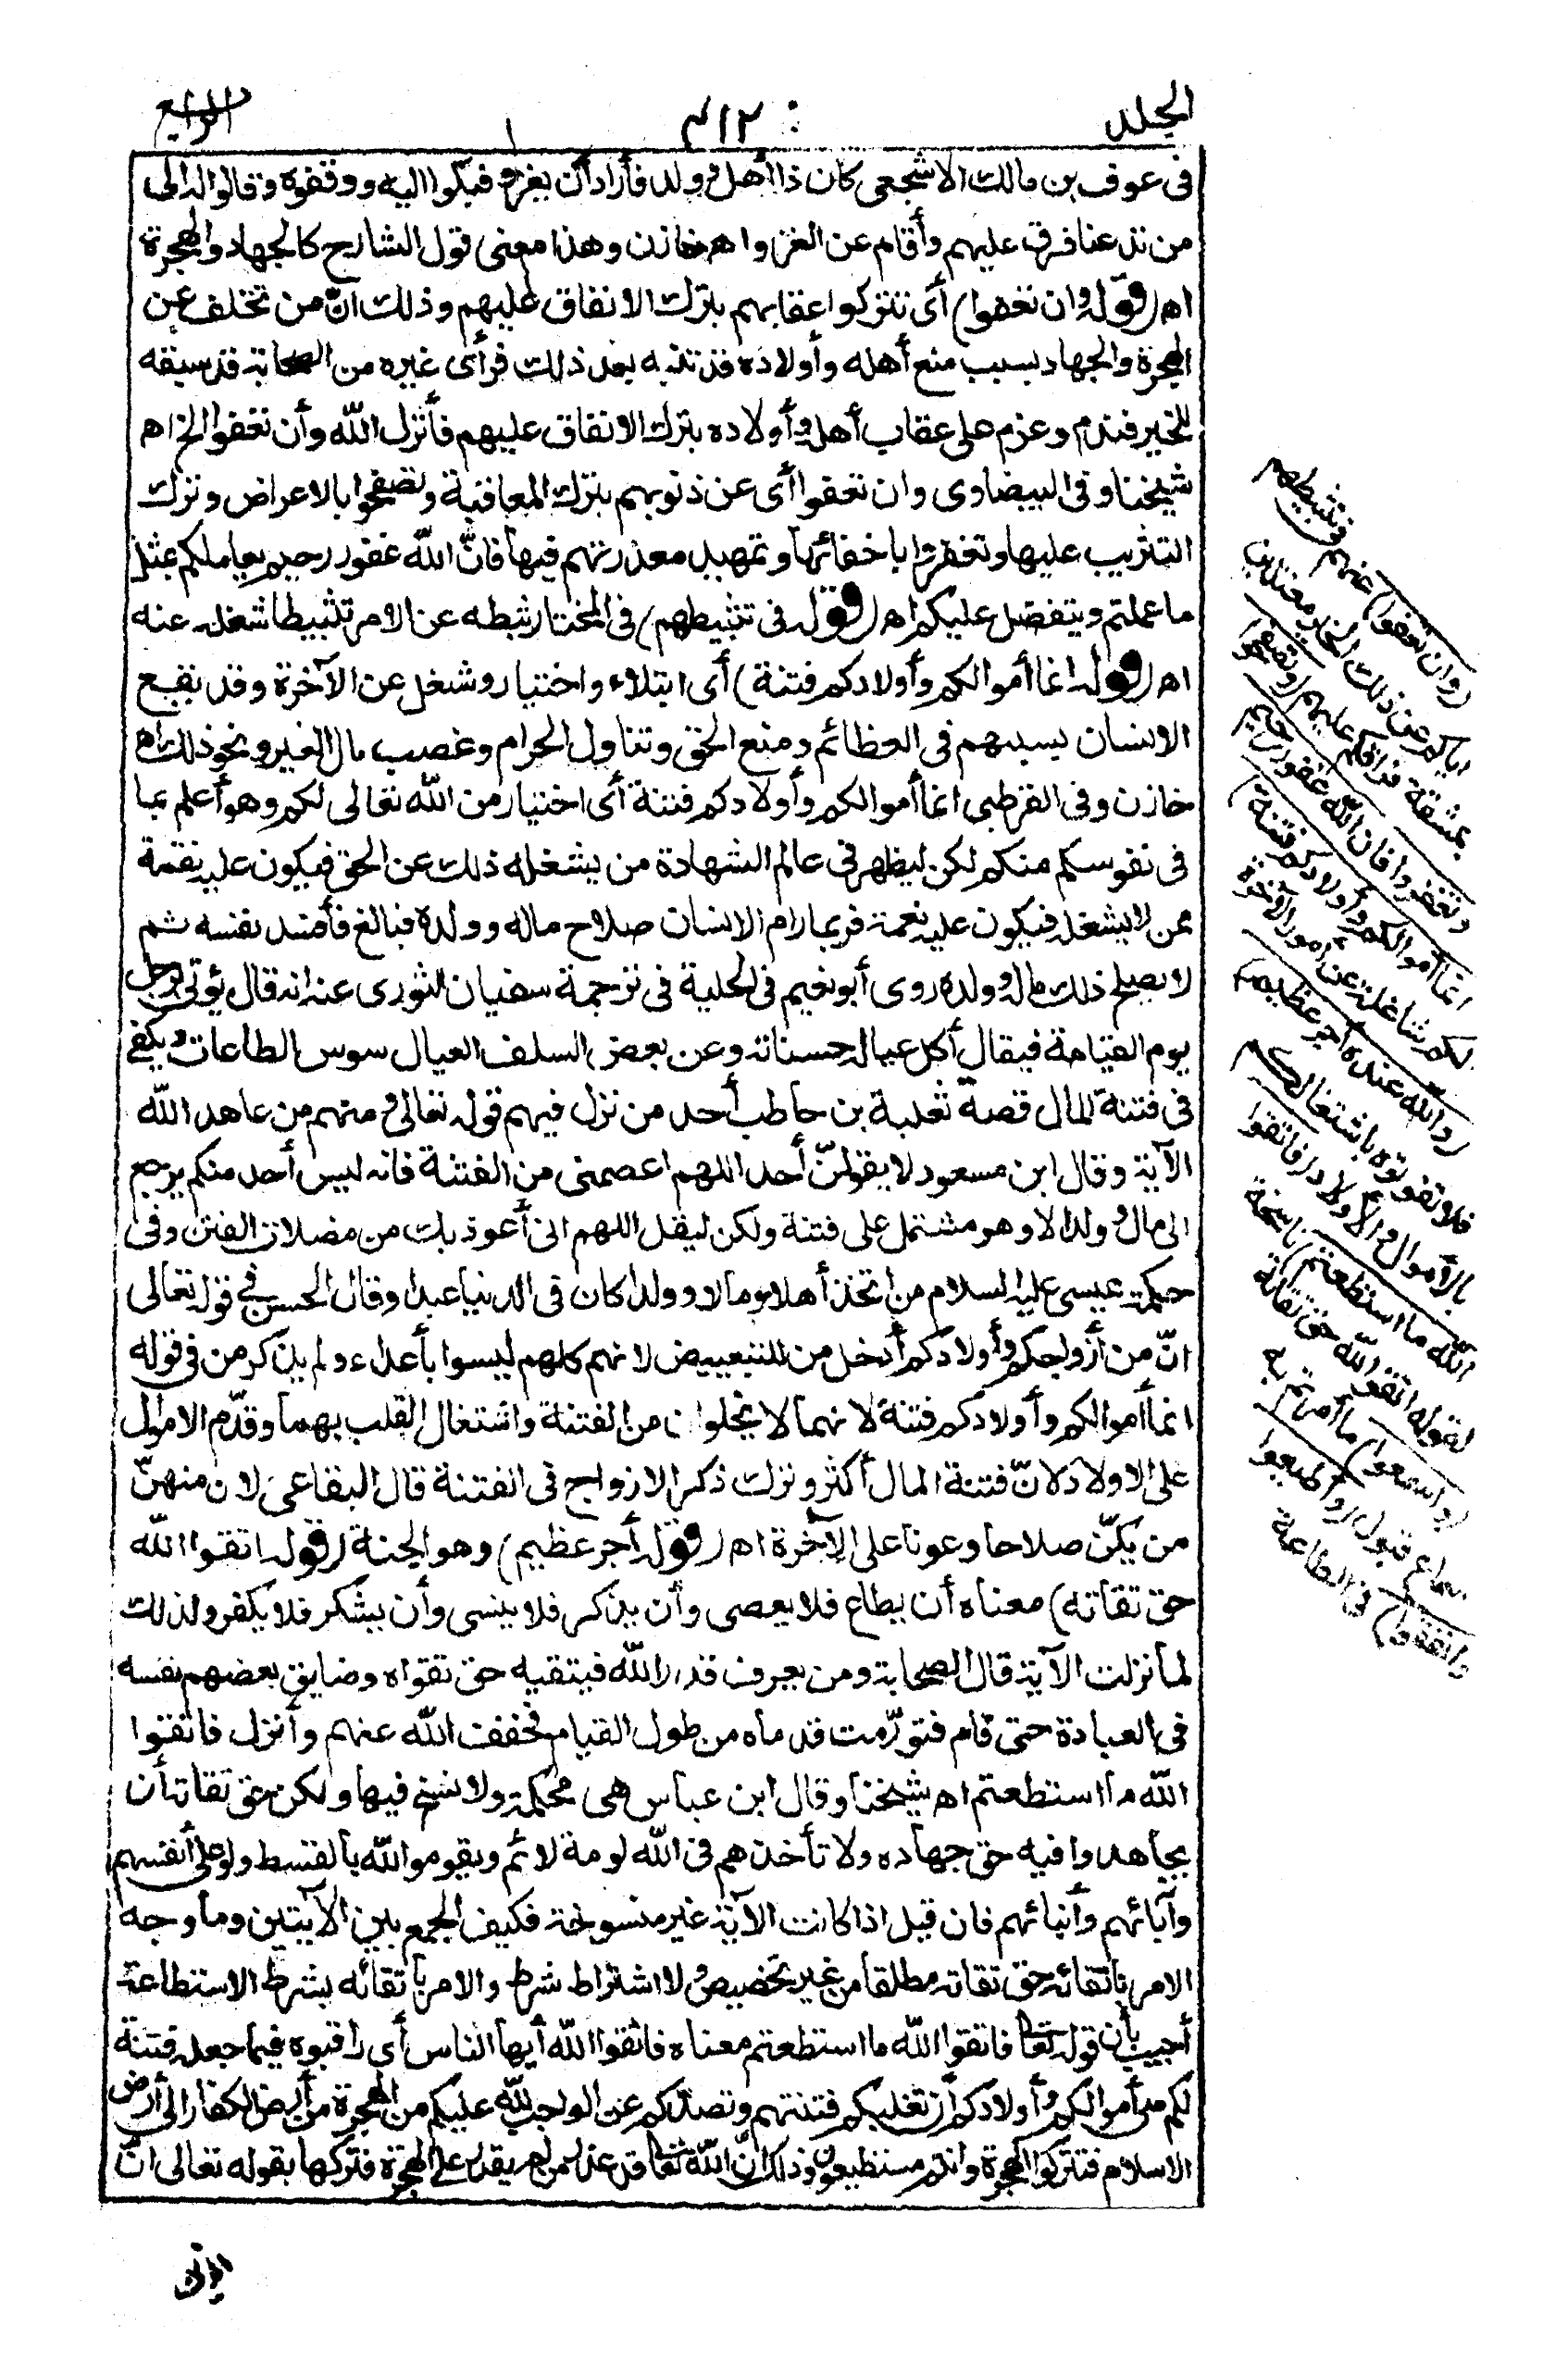 الجلد
٤١٢
الرابع
فى عوف بن مالك الاشجعى كان ذا أهل وولد فأراد أن يغزو فبكوا اليه ووقفوه وقالوا الى
من تدعنا فرق عليهم وأقام عن الغزو اه خازن وهذا معنى قول الشارح كالجهاد والهجرة
اه (قوله وان تعفوا) أى تتركوا عقابهم بترك الانفاق عليهم وذلك انّ من تخلف عن
الهجرة والجهاد بسبب منع أهله وأولاده قد تنبه بعد ذلك فرأى غيره من الصحابة قد سبقه
للخير فندم وعزم على عقاب أهله وأولاده بترك الانفاق عليهم فأنزل الله وأن تعفوا الخ اه
شيخنا وفى البيضاوى وان تعفوا أى عن ذنوبهم بترك المعاقبة وتصفحوا بالاعراض وترك
التثريب عليها وتغفروا باخفائها وتمهيد معذرتهم فيها فانّ الله غفور رحيم يعاملكم بمثل
ما عملتم ويتفضل عليكم اه (قوله فى تثبيطهم) فى المختار ثبطه عن الامر تثبيطا شغله عنه
اه (قوله انما أموالكم وأولادكم فتنة) أى ابتلاء واختبار وشغل عن الآخرة وقد يقع
الانسان بسببهم فى العظائم ومنع الحق وتناول الحرام وغصب مال الغير ونحو ذلك اه
خازن وفى القرطبى انما أموالكم وأولادكم فتنة أى اختبار من الله تعالى لكم وهو أعلم بما
فى نفوسكم منكم لكن ليظهر فى عالم الشهادة من يشغله ذلك عن الحق فيكون عليه نقمة
ممن لا يشغله فيكون عليه نعمة فربما رام الانسان صلاح ماله وولده فبالغ فأفسد نفسه ثم
لا يصلح ذلك ماله وولده روى أبو نعيم فى الحلية فى ترجمة سفيان الثورى عنه انه قال يؤتى برجل
يوم القيامة فيقال أكل عياله حسناته وعن بعض السلف العيال سوس الطاعات ويكفى
فى فتنة المال قصة ثعلبة بن حاطب أحد من نزل فيهم قوله تعالى ومنهم من عاهد الله
الآية وقال ابن مسعود لا يقولنّ أحد اللهم اعصمنى من الفتنة فانه ليس أحد منكم يرجع
الى مال وولد الا وهو مشتمل على فتنة ولكن ليقل اللهم انى أعوذ بك من مضلات الفتن وفى
حكمة عيسى عليه السلام من اتخذ أهلا ومالا وولدا كان فى الدنيا عبدا وقال الحسن فى قوله تعالى
انّ من أزواجكم وأولادكم أدخل من للتبعيض لانهم كلهم ليسوا بأعداء ولم يذكر من فى قوله
انما أموالكم وأولادكم فتنة لانهما لا يخلوان من الفتنة واشتغال القلب بهما وقدّم الاموال
على الاولاد لانّ فتنة المال أكثر وترك ذكر الازواج فى الفتنة قال البقاعى لان منهنّ
من يكنّ صلاحا وعونا على الآخرة اه (قوله أجر عظيم) وهو الجنة (قوله اتقوا الله
حق تقاته) معناه أن يطاع فلا يعصى وأن يذكر فلا ينسى وأن يشكر فلا يكفر ولذلك
لما نزلت الآية قال الصحابة ومن يعرف قدر الله فيتقيه حق تقواه وضايق بعضهم نفسه
فى العبادة حتى قام فتورّمت قدماه من طول القيام فخفف الله عنهم وأنزل فاتقوا
الله ما استطعتم اه شيخنا وقال ابن عباس هى محكمة ولا نسخ فيها ولكن حق تقاته أن
يجاهدوا فيه حق جهاده ولا تأخذهم فى الله لومة لائم ويقوموا لله بالقسط ولو على أنفسهم
وآبائهم وأبنائهم فان قيل اذا كانت الآية غير منسوخة فكيف الجمع بين الآيتين وما وجه
الامر باتقائه حق تقاته مطلقا من غير تخصيص ولا اشتراط شرط والامر باتقائه بشرط الاستطاعة
أجيب بأن قوله تعالى فاتقوا الله ما استطعتم معناه فاتقوا الله أيها الناس أى راقبوه فيما جعله فتنة
لكم من أموالكم وأولادكم أن تغلبكم فتنتهم وتصدّكم عن الواجب لله عليكم من الهجرة من أرض الكفار الى أرض
الاسلام فتتركوا الهجرة وانتم مستطيعون وذلك انّ الله تعالى قد عذر من لم يقدر على الهجرة فتركها بقوله تعالى انّ
فى تثبيطهم
(وان تعفوا) عنهم
اياكم عن ذلك الخير معتذرين
بمشقة فراقكم عليهم (وتصفحوا
وتغفروا فان الله غفور رحيم
انما أموالكم وأولادكم فتنة)
لكم شاغلة عن أمور الآخرة
(والله عنده أجر عظيم)
فلا تفوتوه باشتغالكم
بالأموال والأولاد (فاتقوا
الله ما استطعتم) ناسخة
لقوله اتقوا الله حق تقاته
(واسمعوا) ما أمرتم به
سماع قبول (وأطيعوا
وانفقوا) فى الطاعة